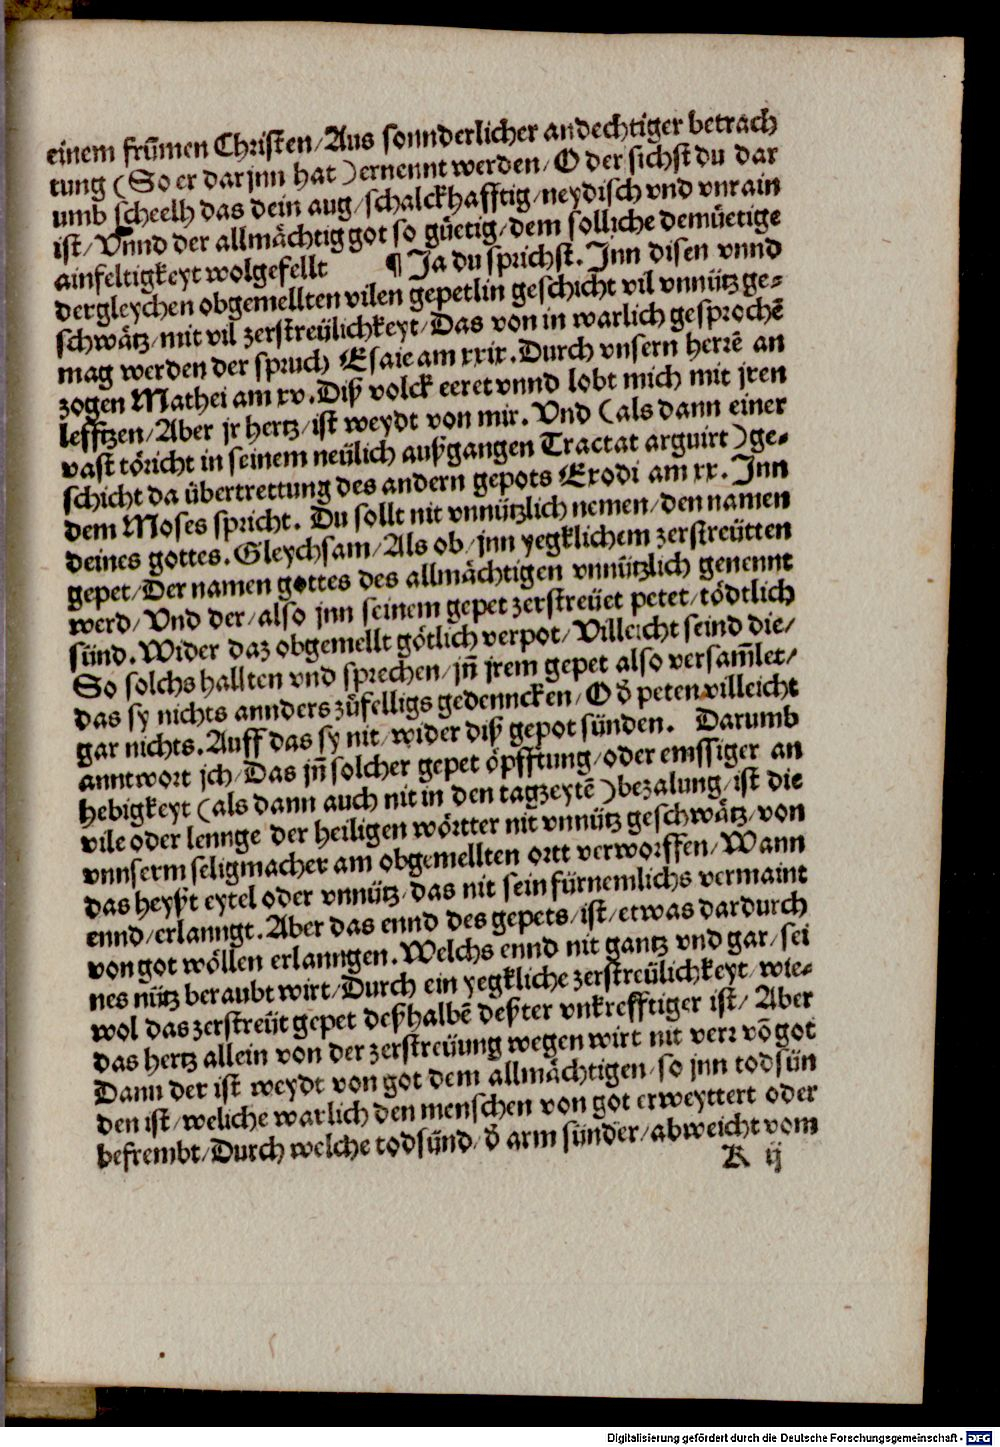 einem frũmen Christen/Aus sonnderlicher andechtiger betrach
tung (So er darjnn hat) ernennt werden/O der sichst du dar
umb scheelh das dein aug/schalckhafftig/neydisch vnd vnrain
ist/Vnnd der allmächtig got so güetig/dem solliche demüetige
ainfeltigkeyt wolgefellt ¶ Ja du sprichst. Jnn disen vnnd
dergleychen obgemellten vilen gepetlin geschicht vil vnnütz ge-
schwätz/mit vil zerstreülichkeyt/Das von in warlich gesprochē
mag werden der spruch Esaie am xxix. Durch vnsern herrē an
zogen Mathei am xv. Diß volck eeret vnnd lobt mich mit jren
lefftzen/Aber jr hertz/ist weydt von mir. Vnd (als dann einer
vast töricht in seinem neülich außgangen Tractat arguirt) ge-
schicht da übertrettung des andern gepots Exodi am xx. Jnn
dem Moses spricht. Du sollt nit vnnützlich nemen/den namen
deines gottes. Gleychsam/Als ob/jnn yegklichem zerstreütten
gepet/Der namen gottes des allmächtigen vnnützlich genennt
werd/Vnd der/also jnn seinem gepet zerstreüet petet/tödtlich
sünd. Wider daz obgemellt götlich verpot/Villeicht seind die/
So solchs hallten vnd sprechen/jñ jrem gepet also versam̃let/
das sy nichts annders zůfelligs gedenncken/O đ peten villeicht
gar nichts. Auff das sy nit/wider diß gepot sünden. Darumb
anntwort jch/Das jñ solcher gepet öpfftung/oder emssiger an
hebigkeyt (als dann auch nit in den tagzeytē) bezalung/ist die
vile oder lennge der heiligen wörtter nit vnnütz geschwätz/von
vnnserm seligmacher am obgemellten ortt verworffen/Wann
das heyßt eytel oder vnnütz/das nit sein fürnemlichs vermaint
ennd/erlanngt. Aber das ennd des gepets/ist/etwas dardurch
von got wöllen erlanngen. Welchs ennd nit gantz vnd gar/sei
nes nütz beraubt wirt/Durch ein yegkliche zerstreülichkeyt/wie-
wol das zerstreüt gepet deßhalbē deßter vnkrefftiger ist/Aber
das hertz allein von der zerstreüung wegen wirt nit verr võ got
Dann der ist weydt von got dem allmächtigen/so jnn todsün
den ist/weliche warlich den menschen von got erweyttert oder
befrembt/Durch welche todsünd/đ arm sünder/abweicht vom
K ij
Digitalisierung gefördert durch die Deutsche Forschungsgemeinschaft - DFG